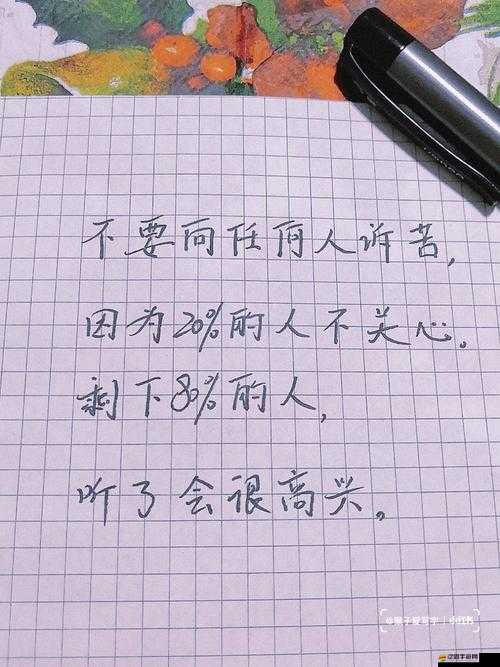 不要向任何人诉苦,
因为20%的人不关心。
剩下80%的人,
听了会很高兴。
小红书